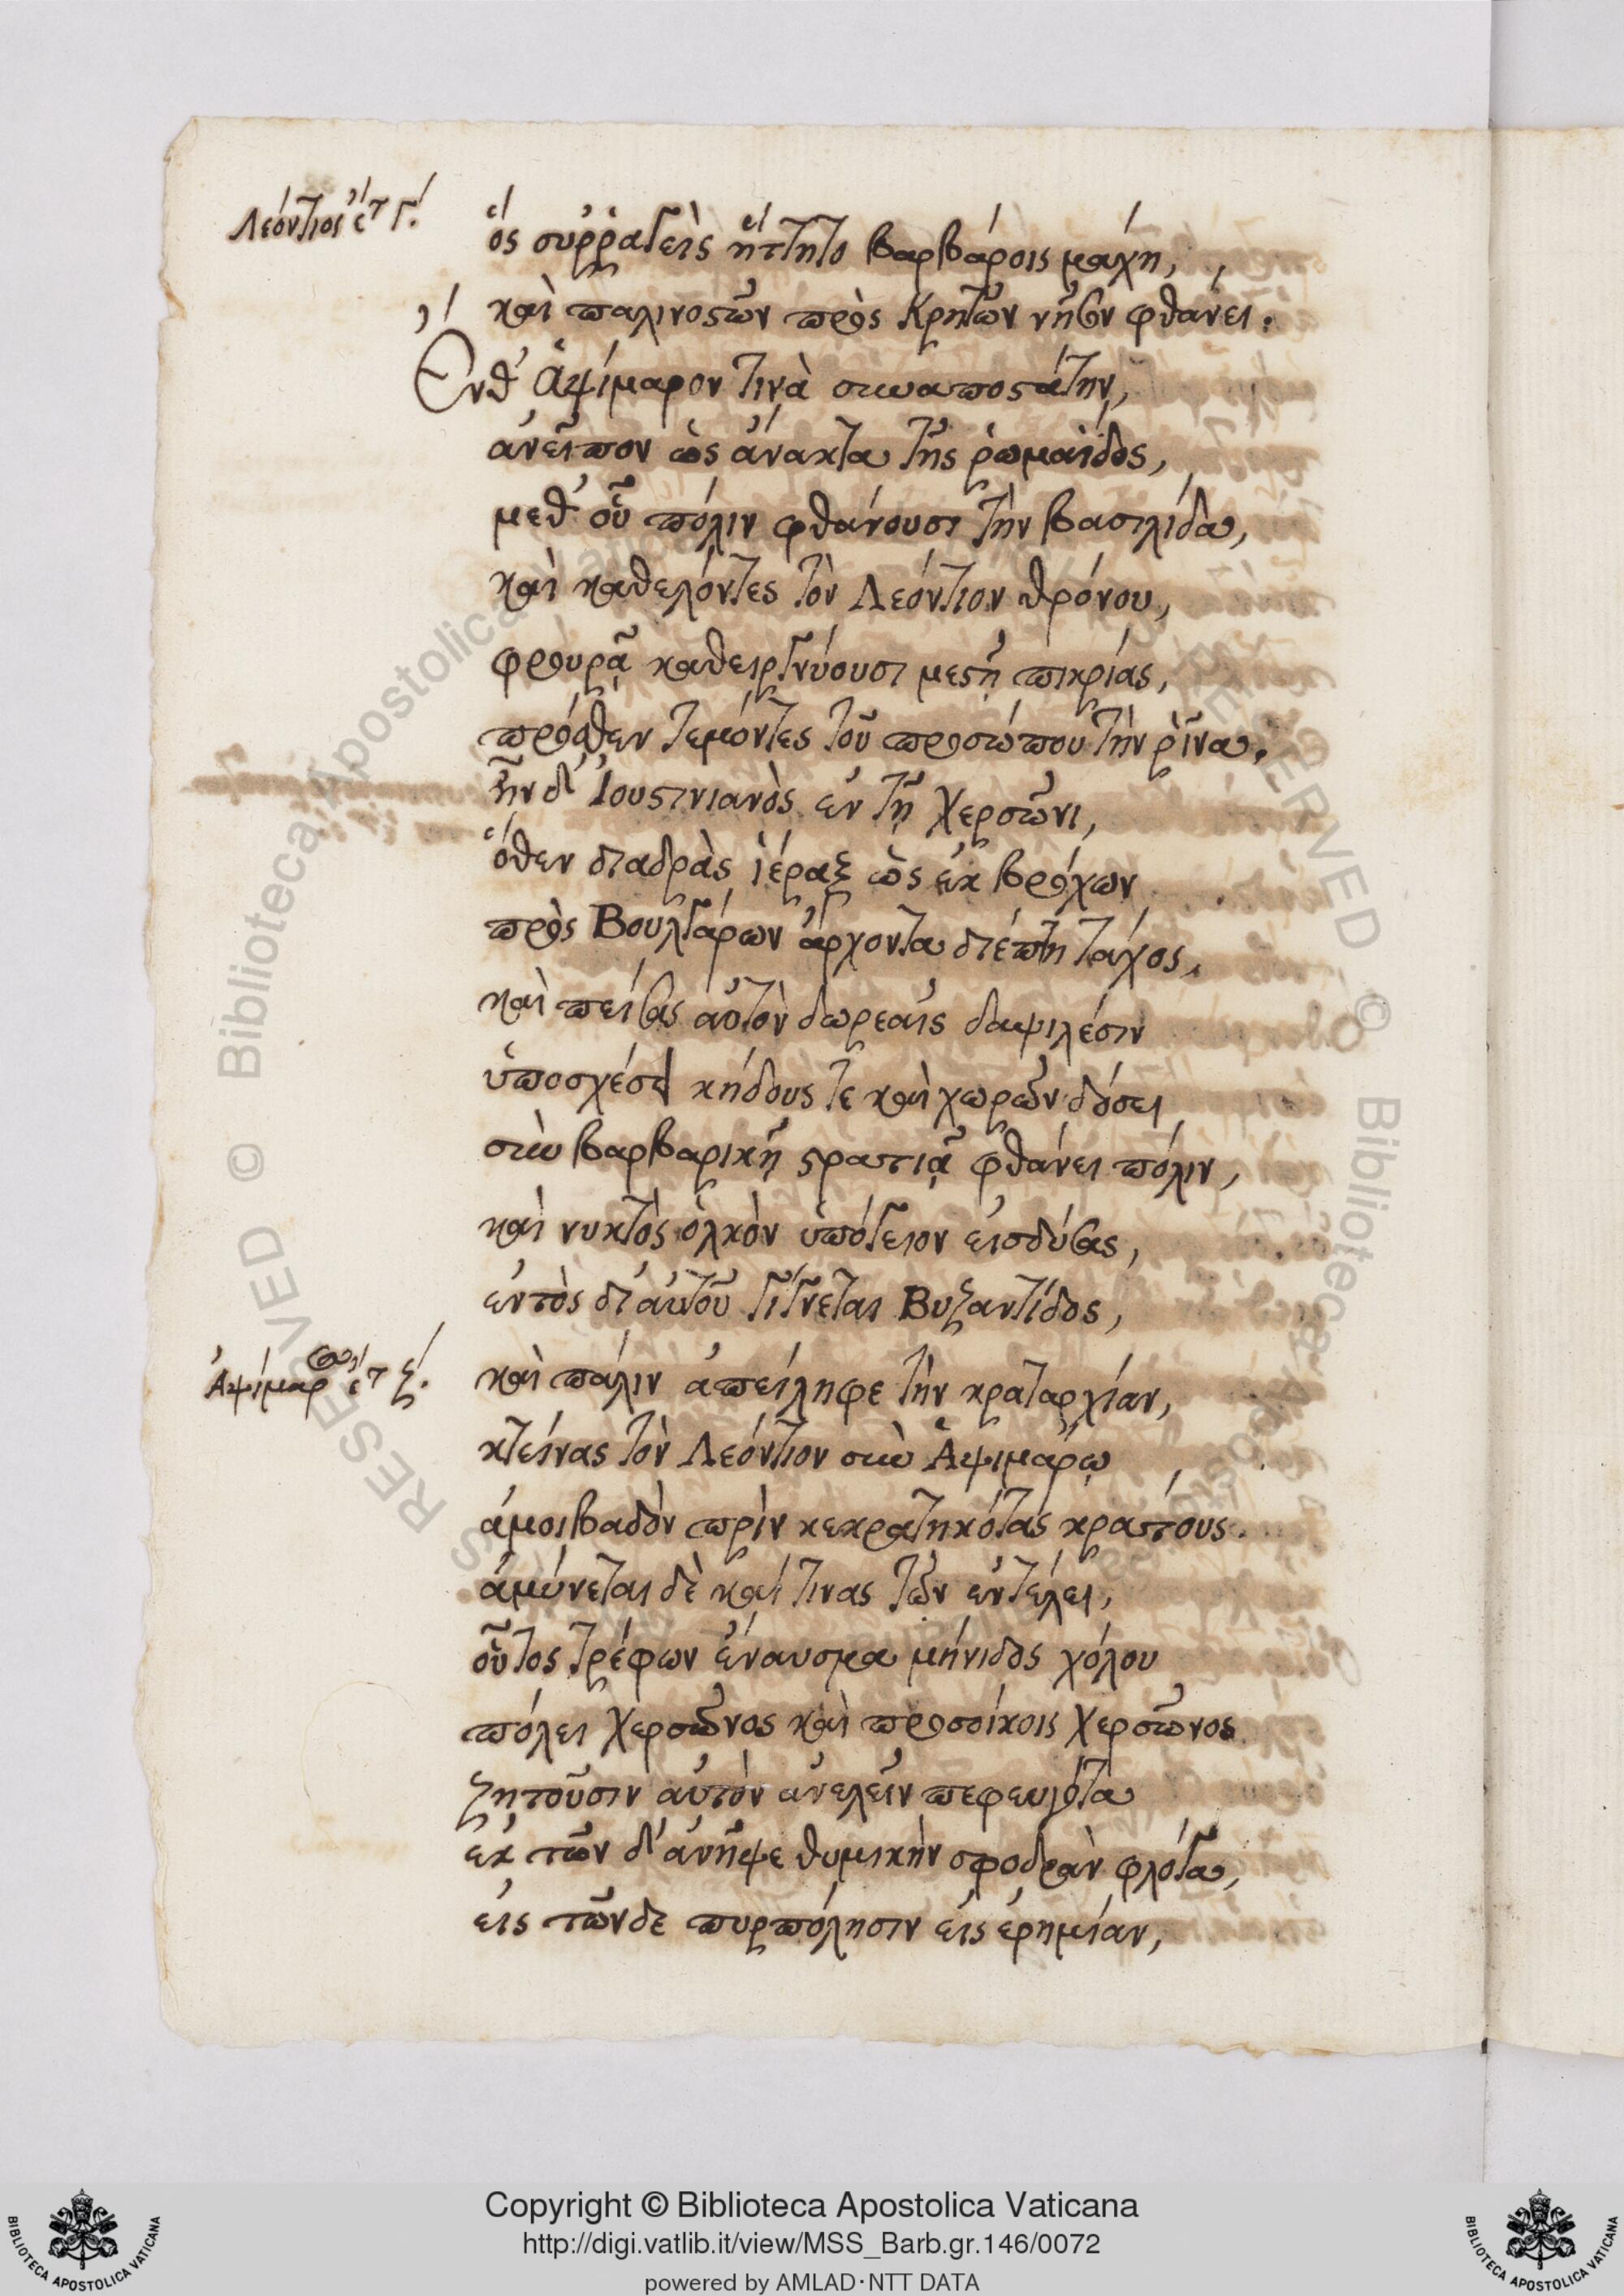 Λεόντιος ἔτ γ΄.
ὃς συῤῥαγεὶς ἥττητο βαρβάροις μάχη,
καὶ παλινοστῶν πρὸς Κρητῶν νῆσον φθάνει.
Ἔνθ' Ἀψίμαρον τινὰ συναποστάτην,
ἀνεῖπον ὡς ἄνακτα τῆς ῥωμαΐδος,
μεθ' οὗ πόλιν φθάνουσι τὴν βασιλίδα,
καὶ καθελόντες τὸν Λεόντιον θρόνου,
φρουρᾷ καθειργνύουσι μεστῇ πικρίας,
πρόσθεν τεμόντες τοῦ προσώπου τὴν ῥῖνα.
ἦν δ' Ἰουστινιανὸς ἐν τῇ Χερσῶνι,
ὅθεν διαδρὰς ἱέραξ ὡς ἐκ βρόχων
πρὸς Βουλγάρων ἄρχοντα διέπτη τάχος,
καὶ πείσας αὐτὸν δωρεαῖς δαψιλέσιν
ὑποσχέσει κήδους τε καὶ χωρῶν δόσει
σὺν βαρβαρικῇ στρατιᾷ φθάνει πόλιν,
καὶ νυκτὸς ὁλκὸν ὑπόγειον εἰσδύσας,
ἐντὸς δι' αὐτοῦ γίγνεται Βυζαντίδος,
Ἀψίμαρος ἔτ ζ΄.
καὶ πάλιν ἀπείληφε τὴν κραταρχίαν,
κτείνας τὸν Λεόντιον σὺν Ἀψιμάρῳ
ἀμοιβαδὸν πρὶν κεκρατηκότας κράτους.
ἀμύνεται δὲ καί τινας τῶν ἐντέλει,
οὗτος τρέφων ἔναυσμα μήνιδος χόλου
πόλει Χερσῶνος καὶ προσοίκοις Χερσῶνος
ζητοῦσιν αὐτὸν ἀνελεῖν πεφευγότα
ἐκ τῶν δ' ἀνῆψε θυμικὴν σφοδρὰν φλόγα,
εἰς τῶνδε πυρπόλησιν εἰς ἐρημίαν,
Copyright © Biblioteca Apostolica Vaticana
http://digi.vatlib.it/view/MSS_Barb.gr.146/0072
powered by AMLAD·NTT DATA